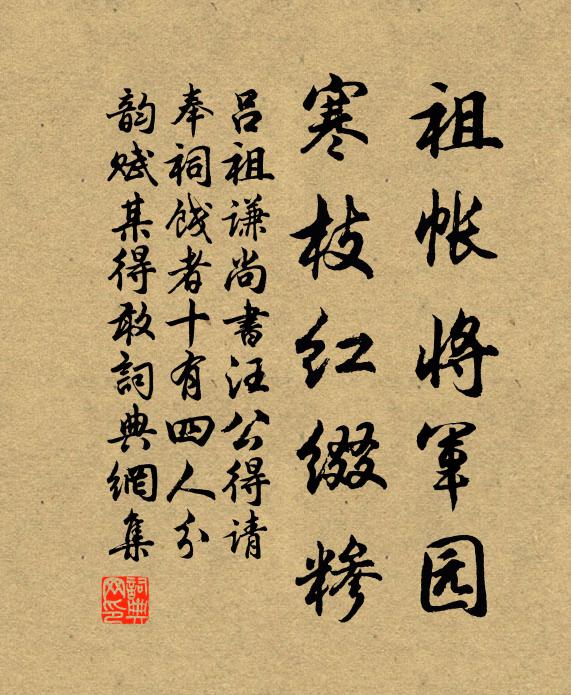 祖帐将军园
寒枝红缀糁
吕祖谦尚书汪公得请
奉祠饯者十有四人分
韵赋某得敢词典网集
词典网印